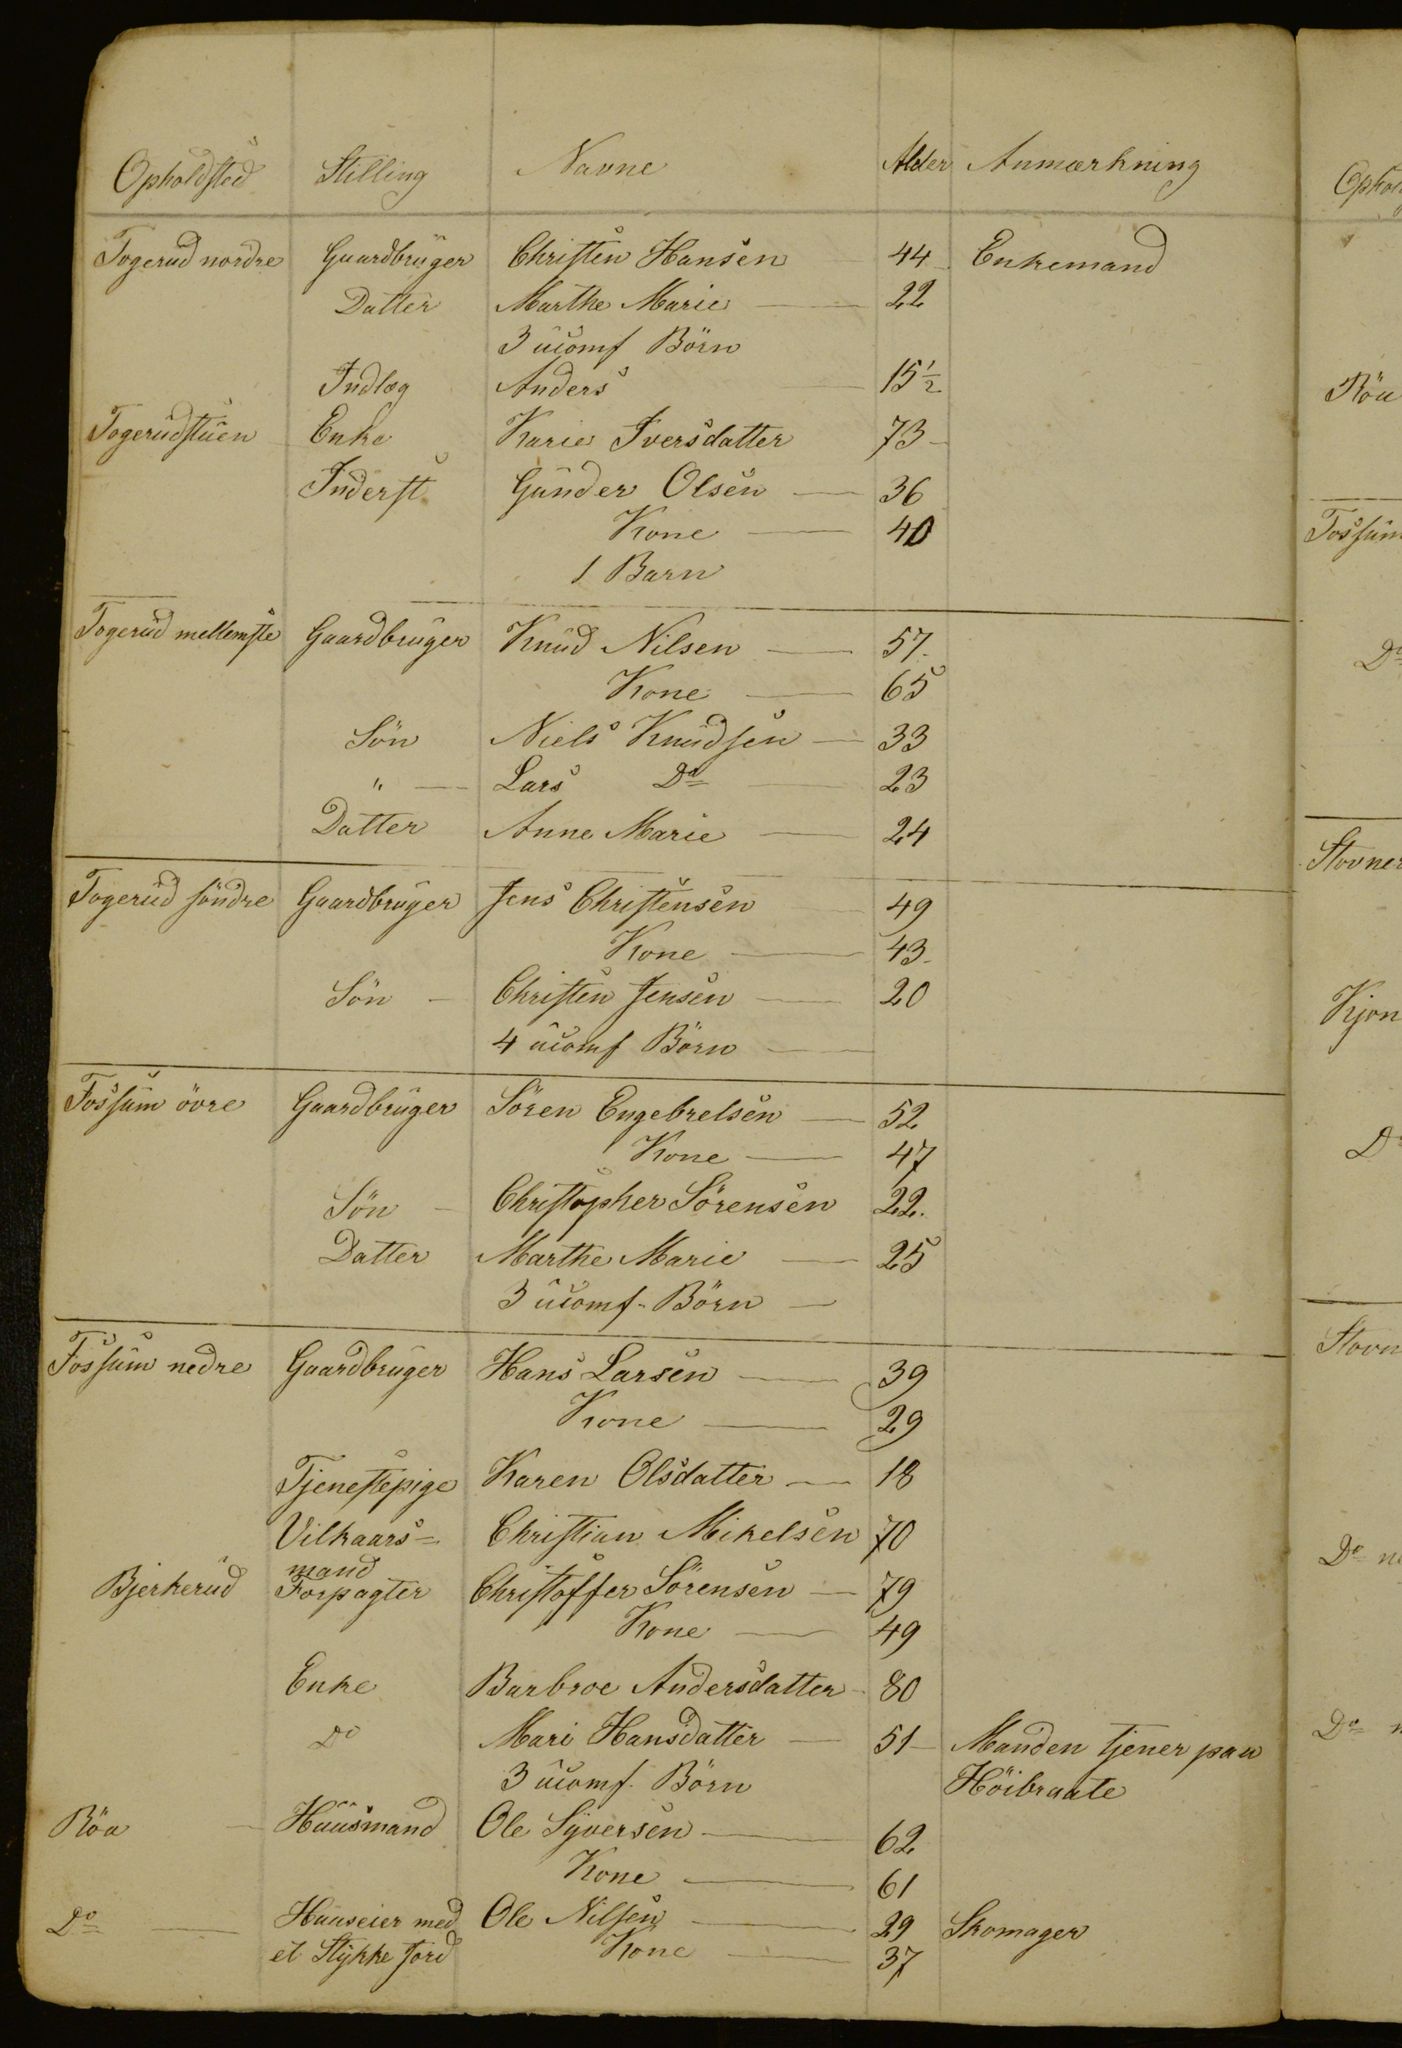 Opholdsted Stilling Navne Alder Anmærkning
Togerud nordre Gaardbruger Christen Hansen 44 Enkemand
Datter Marthe Marie — 22
3 ucomf Börn
Indlæg Anders — 15½
Togerudstuen Enke Karie Iversdatter 73
Inderst Gunder Olsen — 36
Kone — 40
1 Barn
Togerud mellemste Gaardbruger Knud Nilsen — 57
Kone — 65
Sön Niels Knudsen — 33
" — Lars Do — 23
Datter Anne Marie — 24
Togerud söndre Gaardbruger Jens Christensen 49
Kone — 43
Sön — Christen Jensen — 20
4 ucomf Börn —
Fossum övre Gaardbruger Sören Engebretsen — 52
Kone — 47
Sön — Christopher Sörensen 22.
Datter Marthe Marie — 25
3 ucomf. Börn —
Fossum nedre Gaardbruger Hans Larsen — 39
Kone — 29
Tjenestepige Karen Olsdatter — 18
Vilkaars= Christian Mikelsen 70
mand
Bjerkerud Forpagter Christoffer Sörensen — 79
Kone — 49
Enke Barbroe Andersdatter 80
Do Mari Hansdatter — 51 — Manden tjener paa
3 ucomf. Börn Höibraate
Röa — Huusmand Ole Syversen — 62
Kone — 61
Do — Huuseier med Ole Nilsen — 29 Skomager
et Stykke Jord Kone — 37
Röa
Fossum
Do
Stovner
Kjon
Do
Stovn
Do
Do